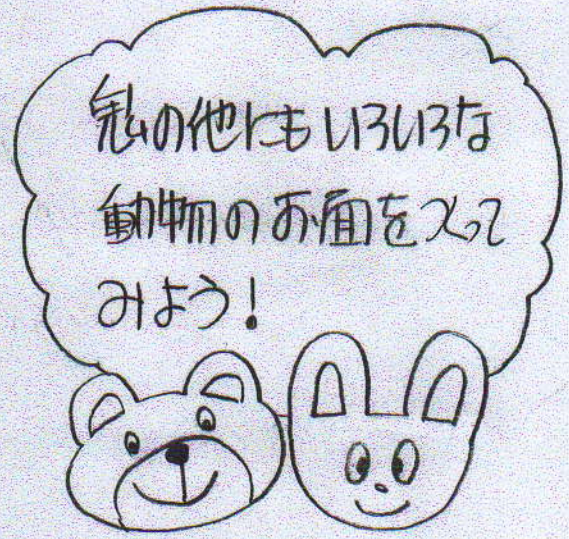 私の他にもいろいろな
動物のお面をつくって
みよう!